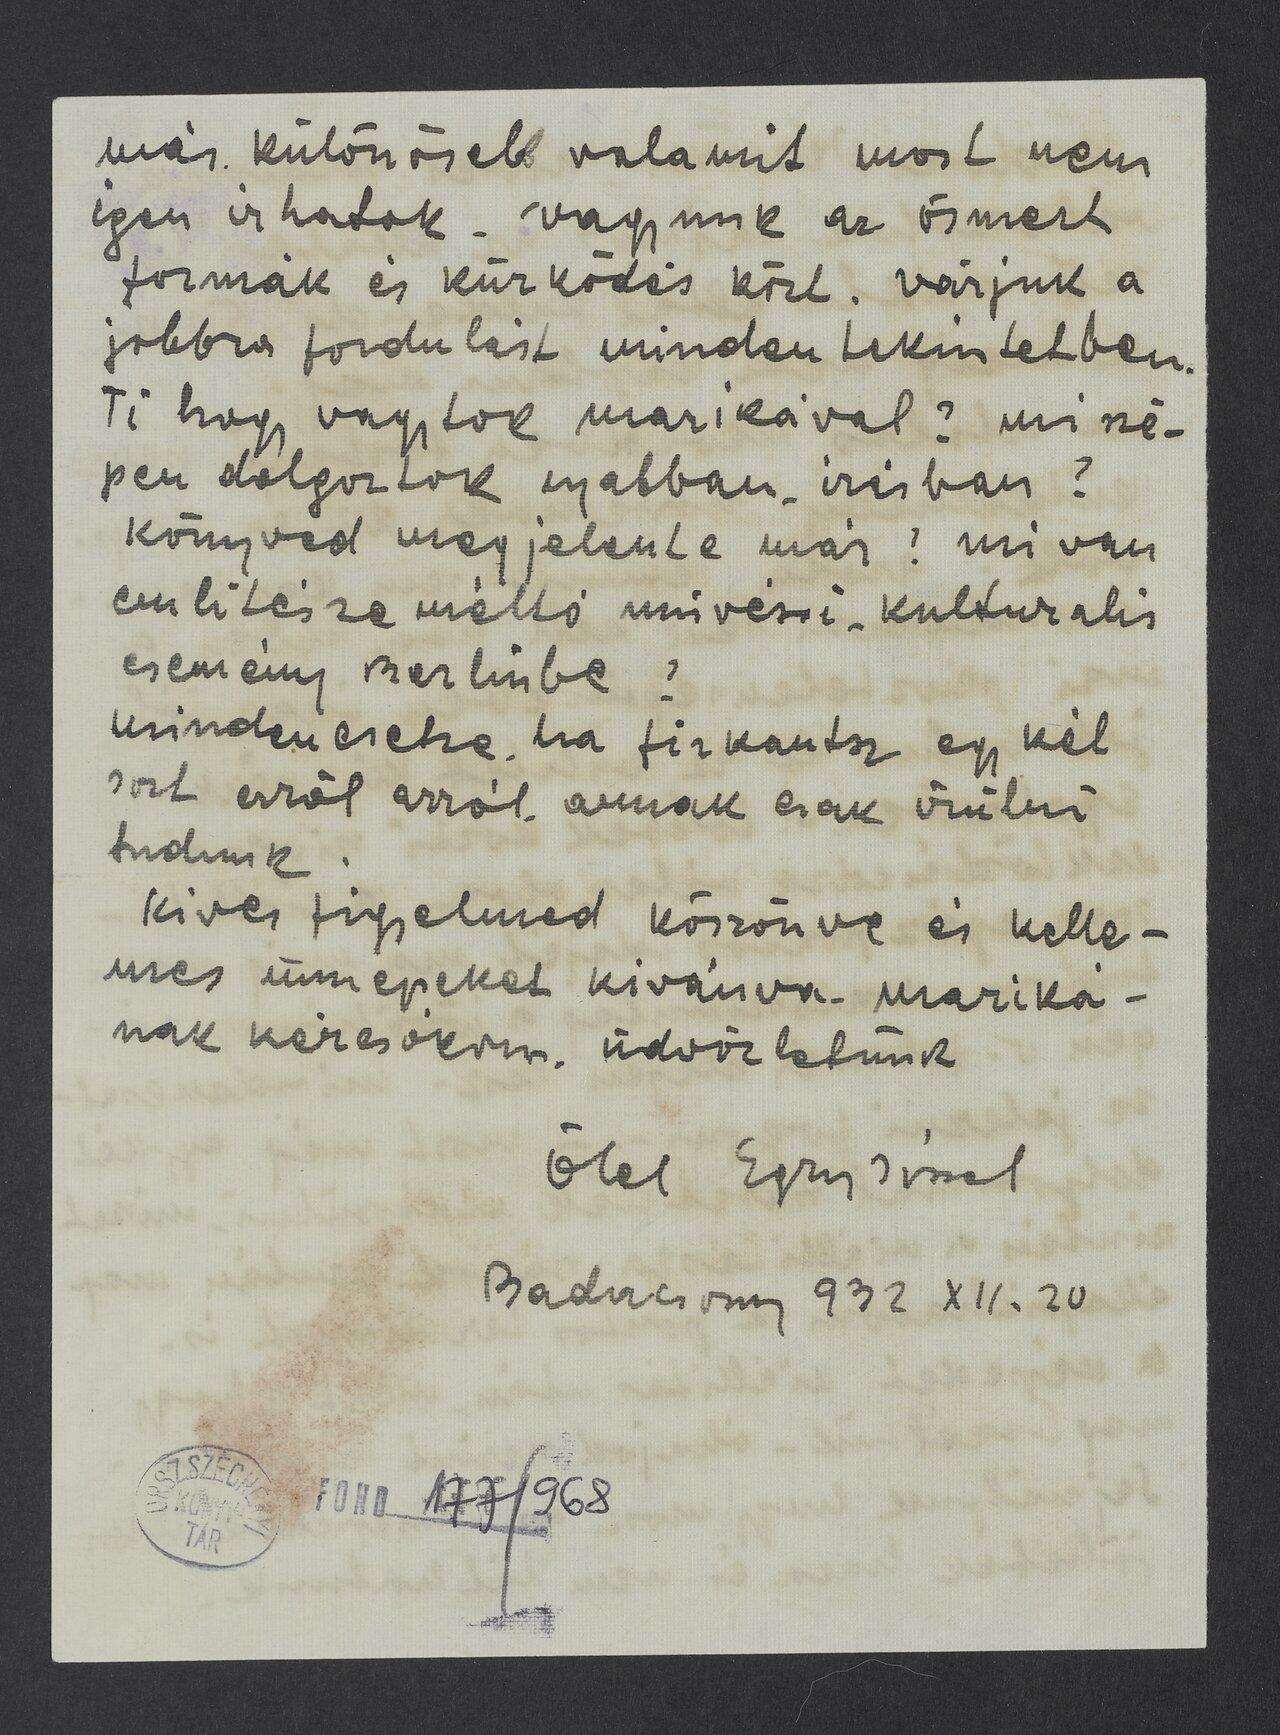 más. különösebb valamit most nem
igen irhatok - vagyunk az ösmert
formák és küzködés közt. várjuk a
jobbra fordulást minden tekintetben.
Ti hogy vagytok marikával? mi szé-
pen dolgoztok nyakban - irásban?
könyved megjelente már? mi van
emlitésre méltó müvészi - kulturalis
esemény Berlinbe?
minden esetre. ha firkantsz egy két
sort erröl arról. annak csak örülni
tudunk.
kives figyelmed köszönve és kelle-
mes ünnepeket kivánva - mariká-
nak kézcsókom. üdvözletünk
Ölel Egry József
Badacsony 932 XII. 20
ORSZ. SZÉCHÉNYI
KÖNYV
TÁR
FOND 177/968